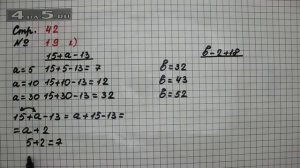 4на5.ru
Стр. 42
№ 19 1)
15+a-13
a=5 15+5-13=7
a=10 15+10-13=12
a=30 15+30-13=32
15+a-13=a+15-13=
=a+2
5+2=7
b-2+18
b=32
b=43
b=52